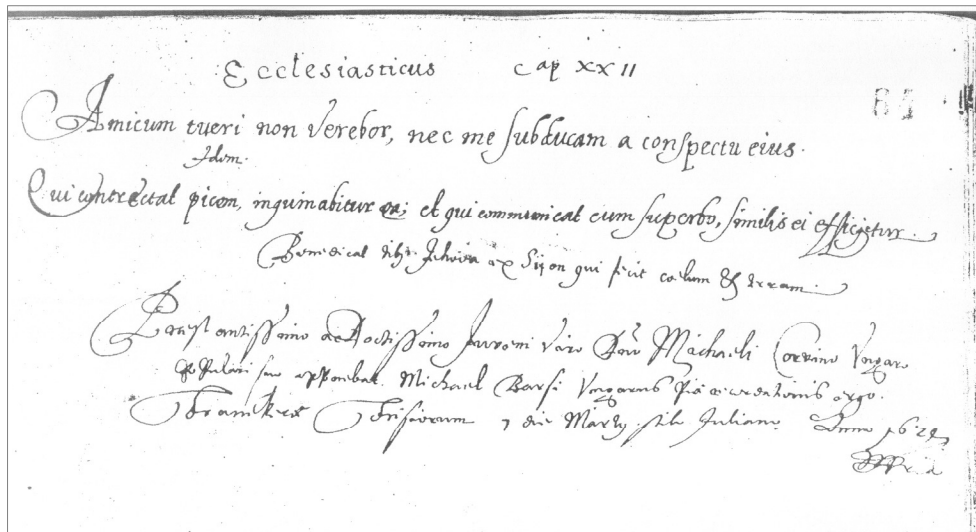 Ecclesiasticus Cap XXII
Amicum tueri non verebor, nec me subducam a conspectu eius.
Idem.
Qui contrectat picem, inquinabitur ea; et qui communicat cum superbo, similis ei efficietur.
Benedicat tibi Jehova ex Sijon qui fecit coelum et terram.
Praestantissimo ac Doctissimo Juveni Viro Dno Michaeli Corvino Ungaro
Populari suo apponebat Michael Barsi Ungarus piae recordationis ergo.
Franekerae Frisiorum 7 die Martij stilo Juliano Anno